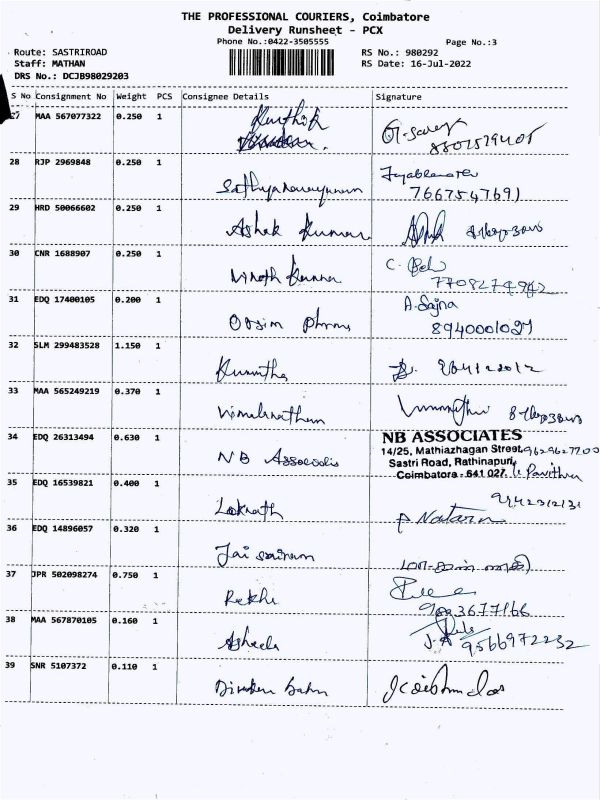 THE PROFESSIONAL COURIERS, Coimbatore
Delivery Runsheet - PCX
Phone No.:0422-3505555
Page No.:3
Route: SASTRIROAD
RS No.: 980292
Staff: MATHAN
RS Date: 16-Jul-2022
DRS No.: DCJB98029203
S No Consignment No Weight PCS Consignee Details Signature
27 MAA 567077322 0.250 1 Karthik
28 RJP 2969848 0.250 1 Sathyanarayanan
7667547691
29 HRD 50066602 0.250 1 Ashok Kumar
30 CNR 1688907 0.250 1 Vinoth Kumar
7708274942
31 EDQ 17400105 0.200 1 A. Sajna
Orsim pharma 8940001027
32 SLM 299483528 1.150 1
33 MAA 565249219 0.370 1 Vimalanathan
34 EDQ 26313494 0.630 1 NB Associates NB ASSOCIATES
14/25, Mathiazhagan Street, 9629627700
Sastri Road, Rathinapuri,
Coimbatora - 641 027. Pavithra
35 EDQ 16539821 0.400 1 Loknath
P Natarn
36 EDQ 14896057 0.320 1 Jai sairam
37 JPR 502098274 0.750 1 Rekha
38 MAA 567870105 0.160 1 9566972232
39 SNR 5107372 0.110 1